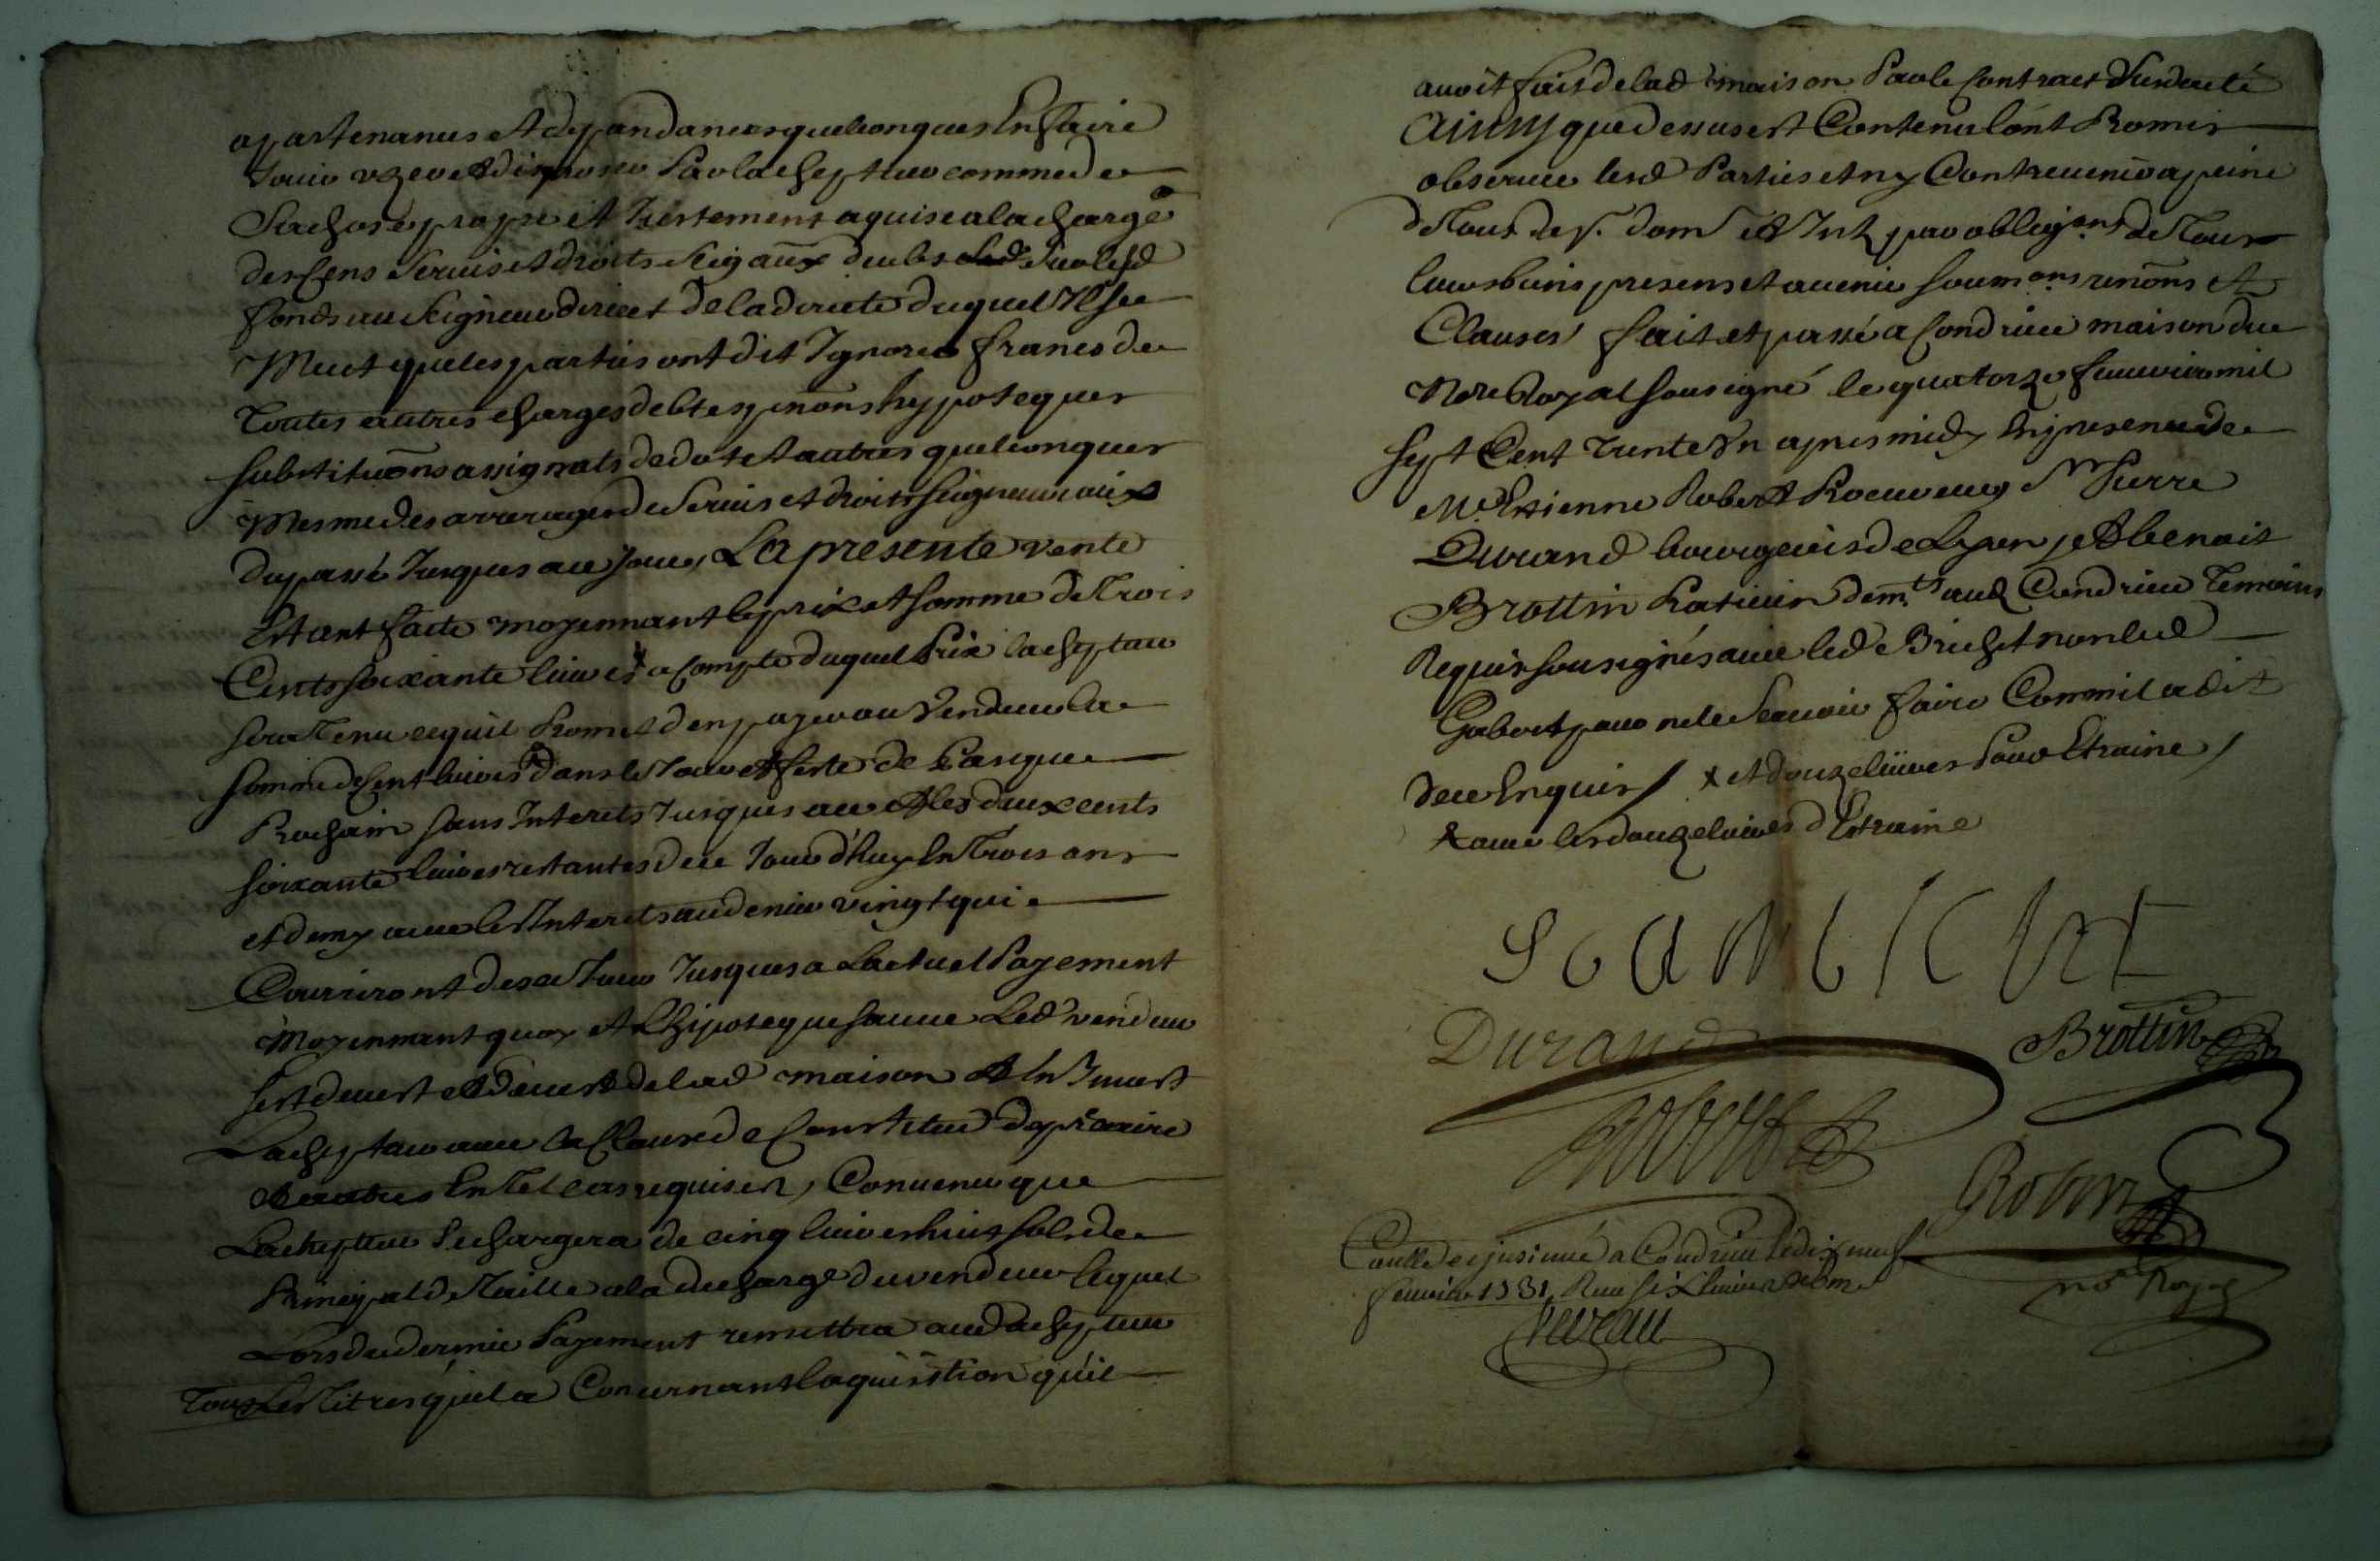 apartenances et dependances quelconques En faire
Jouir uzer et disposer Par lachepteur comme de
Sa chose propre et Justement aquise a la charge
des Cens Servis et droits Seigaux deubs sur lesd
fonds au Seigneur direct de la directe duquel Il se
Meut que les parties ont dit Ignorer francs de
Toutes autres charges debtes pnons hypoteques
substituons assignats de dot et autres quelconques
Mesme des arrerages de Servis et droits Seigneuriaux
du passé Jusques a ce Jour, La presente vente
Estant faite moyennant le prix et somme de Trois
Cents soixante livres x a Compte duquel Prix lachepteur
sera Tenu ce quil Promet den payer au Vendeur la
somme de Cent livres dans le Jour et feste de Pasque
Prochain sans Interets Jusques a ce et les deux cents
soixante livres restantes de ce Jourd'huy En Trois ans
et demy avec les Interets au denier vingt qui
Courriront des ce Jour Jusques a Lactuel Payement
Moyennant quoy et Lhipoteque sauve Led vendeur
sest devest et devest de lad maison et En Invest
Lachepteur avec la Clause de Constitut de precaire
et autres En Tel cas requises, Convenu que
Lachepteur se chargera de cinq livres huit sols de
Principal de Taille a la decharge du vendeur lequel
Lors du dernier Payement remettra aud achepteur
Tous les Titres quil a Concernant laquisition quil
avoit fait de lad maison Par le Contract Susdaté
Ainsy que dessus est Contenu lont Promis
observer lesd Parties et ny Contrevenir a peine
de Tous desp. dom et Int par obligons de Tous
leurs biens presens et avenir soumons renons et
Clauses fait et passé a Condrieu maison du
Nore Royal sousigné le quatorze fevrier mil
sept Cent Trente Un apres midy En presence de
Me Estienne Robert Procureur, Sr Pierre
Durand bourgeois de Lyon, et benoit
Brottin Praticien demts aud Condrieu Temoins
Requis sousignés avec led Brichet non led
Gabert pour ne le Scavoir faire Comme il a dit
de ce Enquis / x et douze livres Pour Etraine /
x avec les douze livres d'Estraine
Durand
Brottin
Robert
Robin
no Royal
Conllé et insinué a Condrieu le dix neuf
fevrier 1731. Receu six livres